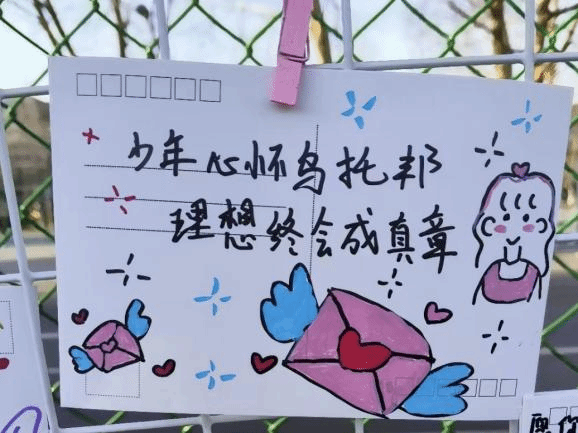 少年心怀乌托邦
理想终会成真章
愿你